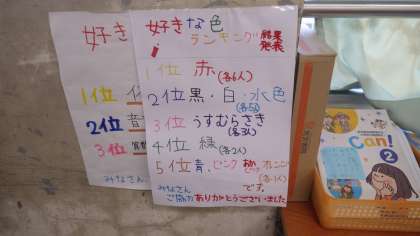 好き
1位
2位 音
3位
みなさん
好きな色
ランキング 結果
発表
1位 赤(各6人)
2位 黒・白・水色
(各5人)
3位 うすむらさき
(各3人)
4位 緑(各2人)
5位 青、ピンク オレンジ
(各1人)
みなさん です。
ご協力ありがとうございました
Can! 2